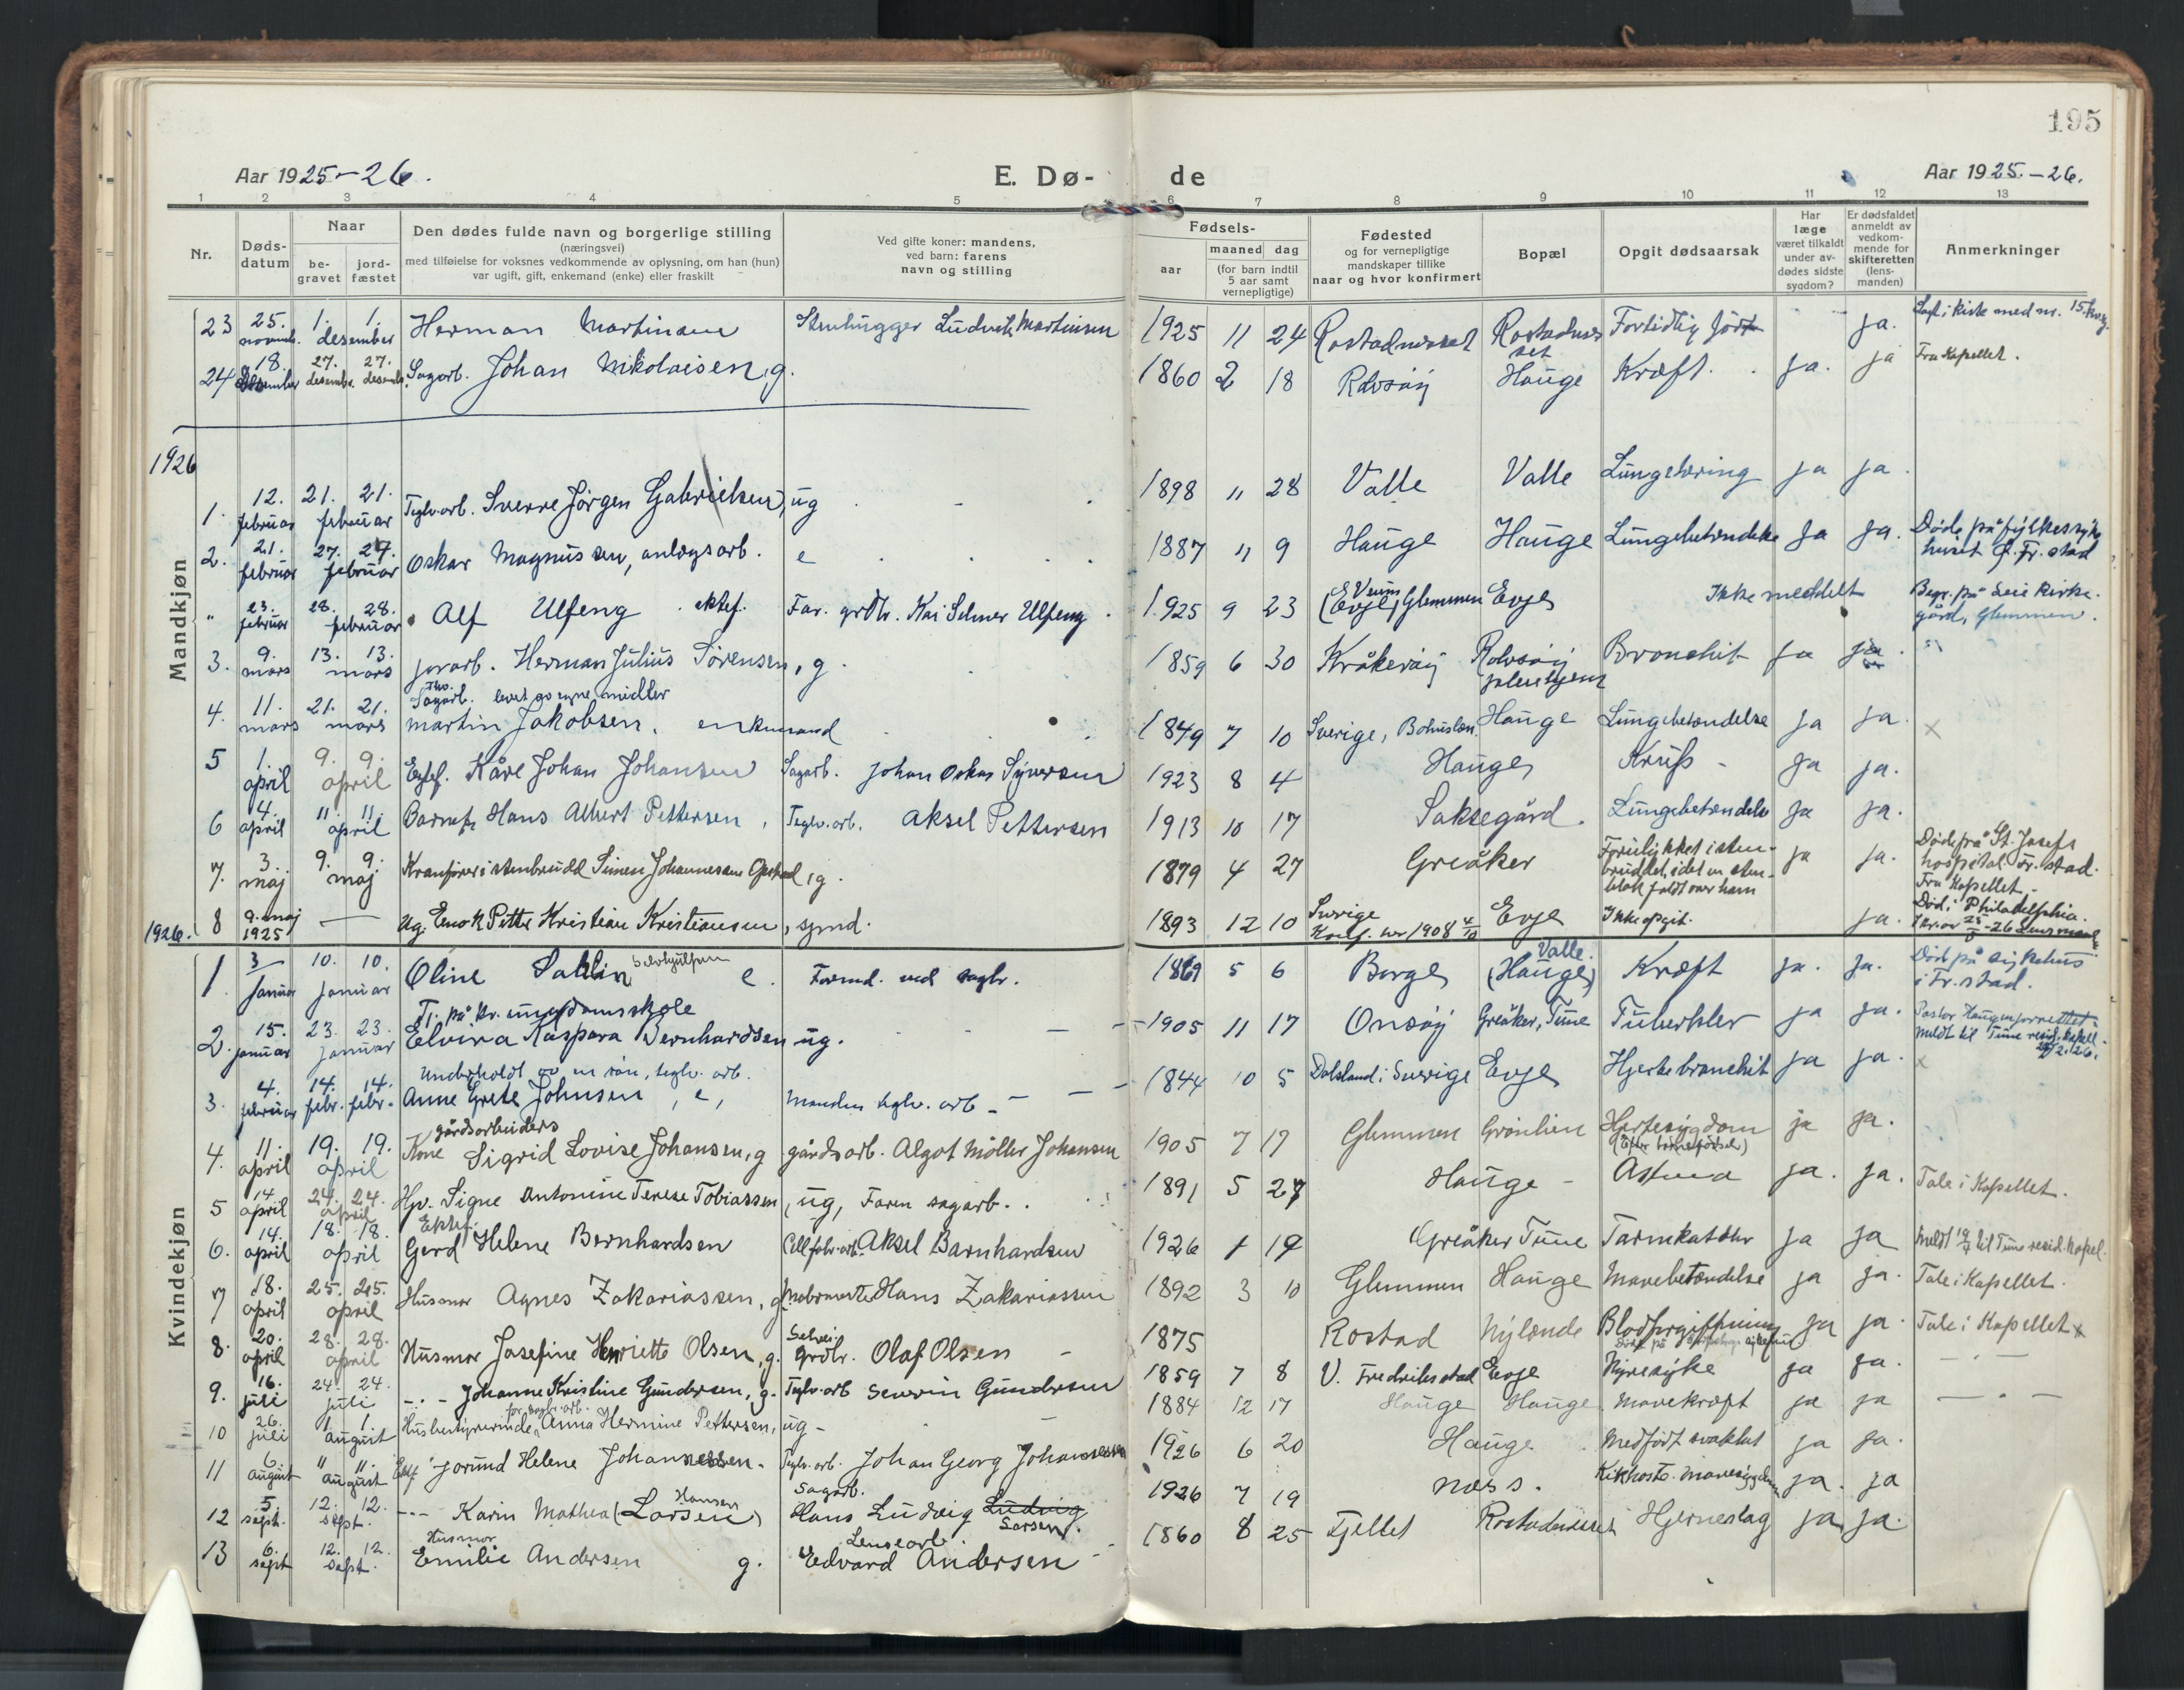 195
Aar 1925-26.
E. Dø- de
Aar 1925.-26.
1 2 3 4 5 6 7 8 9 10 11 12 13
Nr.
Døds-
datum
Naar
be-
gravet
jord-
fæstet
Den dødes fulde navn og borgerlige stilling
(næringsvei)
med tilføielse for voksnes vedkommende av oplysning, om han (hun)
var ugift, gift, enkemand (enke) eller fraskilt
Ved gifte koner: mandens,
ved barn: farens
navn og stilling
Fødsels-
aar
maaned dag
(for barn indtil
5 aar samt
vernepligtige)
Fødested
og for vernepligtige
mandskaper tillike
naar og hvor konfirmert
Bopæl
Opgit dødsaarsak
Har
læge
været tilkaldt
under av-
dødes sidste
sygdom?
Er dødsfaldet
anmeldt av
vedkom-
mende for
skifteretten
(lens-
manden)
Anmerkninger
Mandkjøn
23 25. novemb. 1. 1. desember Herman Martinsen Stenhugger Ludvik Martinsen 1925 11 24 Rostadneset Rostadneset Fortidlig født ja. Lagt i kiste med nr. 15
24 18. desember 27. desemb. 27. desemb. Sagarb. Johan Nikolaisen, g. 1860 2 18 Rolvsøy Hauge Kræft. ja. ja Fra Kapellet.
1926
1. 12. februar 21. 21. februar Teglv.arb. Sverre Jørgen Gabrielsen, ug 1898 11 28 Valle Valle Lungetæring ja ja.
2. 21. februar 27. 27. februar Oskar Magnussen, anlægsarb. e 1887 11 9 Hauge Hauge Lungebetændelse ja ja. Døde på fylkessyke
huset Fr.stad
" 23. februar 28. 28. februar Alf Ulfeng ektef. Far. grdbr. Kai Selmer Ulfeng 1925 9 23 (Evje) Veum, Glemmen Evje Ikke meddelt Begr. på Leie kirke-
gård, Glemmen.
3. 9. mars 13. 13. mars jernarb. Herman Julius Sørensen, g. 1859 6 30 Kråkerøy Rolvsøy
pleiehjem Bronchit ja ja.
4. 11. mars 21. 21. mars Sagarb. levet av egne midler
Martin Jakobsen. enkemand 1849 7 10 Sverige, Bohuslen. Hauge Lungebetændelse ja ja. x
5 1. april 9. 9. april Ektef. Kåre Johan Johansen Sagarb. Johan Oskar Syversen 1923 8 4 Hauge Krup - ja ja.
6 4. april 11. 11. april Barnef. Hans Albert Pettersen, Teglv.arb. Aksel Pettersen 1913 10 17 Saksegård. Lungebetændelse ja ja.
7. 3. maj 9. 9. maj Kranfører i stenbrudd Simen Johannesen, g. 1879 4 27 Greåker Forulykket i sten-
bruddet, idet en sten-
blok faldt over ham ja ja. Døde på St. Josefs
hospital Fr.stad.
Fra Kapellet.-
1926. 8 9. maj
1925 — Ug. Enok Petter Kristian Kristiansen, sjmd. 1893 12 10 Sverige
Konf. 1908 4/10 Evje Ikke opgit. ja. Død i Philadelphia.
Kvindekjøn
1 3 januar 10. 10. januar Oline Sahlin e. Formd. ved teglv. 1869 5 6 Borge (Hauge) Valle. Kræft ja. ja. Død på sykehus
i Fr.stad.
2. 15. januar 23. 23. januar Tj. på kr. ungdomsskole
Elvira Kaspara Bernhardsen ug. 1905 11 17 Onsøy Greåker, Tune Tuberkler ja ja. Pastor Haugen forrettet.
Meldt til Tune resid. kapell.
3. 4. februar 14. febr. 14. febr. Underholdt av en søn, teglv. arb.
Anne Grete Johnsen, e, Manden teglv. arb. 1844 10 5 Dalsland i Sverige Evje Hjertebronchit ja ja. x
4. 11. april 19. 19. april gårdsarbeiders
Kone Sigrid Lovise Johansen, g gårdsarb. Algot Møller Johansen 1905 7 17 Glemmen Grønlien Hjertesygdom
(Efter barnefødsel) ja ja.
5 14 april 24. 24. april Hp. Signe Antonine Terese Tobiassen, ug, Faren sagarb. 1891 5 27 Hauge - Astma ja. ja. Tale i Kapellet.
6. 14. april 18. 18. april Ektef.
Gerd Helene Bernhardsen Cellfabr.arb. Aksel Barnhardsen 1926 1 19 Greåker Tune Tarmkatarr ja ja Meldt 19/4 til Tune resid. kapel.
7 18. april 25. 25. april Husmor Agnes Zakariassen, g Hans Zakariassen 1892 3 10 Glemmen Hauge Mavebetændelse ja ja. Tale i Kapellet.
8. 20. april 28. 28. april Husmor Josefine Henriette Olsen, g. Selvei. grdbr. Olaf Olsen - 1875 Rostad Nylænde Blodforgiftning ja ja. Tale i Kapellet x
9. 16. juli 24. 24. juli -"- Johanne Kristine Gundersen, g. Teglv.arb Severin Gundersen 1859 7 8 V. Fredrikstad Evje Nyresyke ja ja. — " —
10 26. juli 1. 1. august for teglv.arb.
Husbestyrerinde Anna Hermine Pettersen, ug - 1884 12 17 Hauge Hauge Mavekræft ja ja — " —
11 6. august 11 11. august Ektf. Jorund Helene Johannessen. Teglv.arb. Johan Georg Johannessen 1926 6 20 Hauge. Medfødt svakhet ja ja.
12 5. sept. 12. 12. sept. -"- Karin Mathea (Larsen) Hansen Sagarb.
Hans Ludvig Ludvig Larsen. 1926 7 19 Næss. Kikhoste. Mavesygdom ja. ja
13 6. sept 12. 12. sept. Husmor
Emilie Andersen g. Lensearb.
Edvard Andersen 1860 8 25 Fjellet Rostadneset Hjerneslag ja ja.